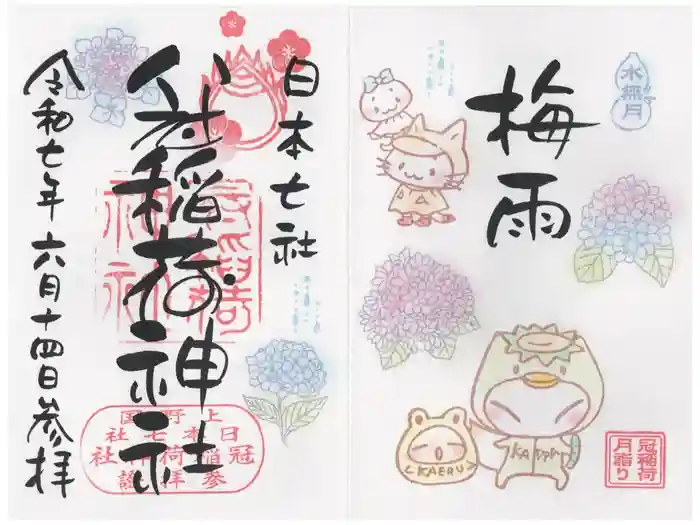 梅雨
水無月
KAERU
KAPPA
冠稲荷
月詣り
日本七社
冠稲荷神社
令和七年 六月十四日参拝
上野国
日本七社
冠稲荷神社
参拝